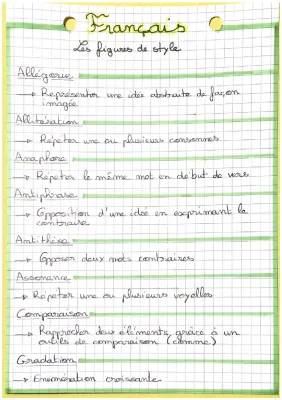 Français
Les figures de style
Allégorie
→ Représenter une idée abstraite de façon
imagée
Allitération
→ Répéter une ou plusieurs consonnes
Anaphore
→ Répéter le même mot en début de vers
Antiphrase
→ Opposition d'une idée en exprimant la
contraire
Antithèse
→ Opposer deux mots contraires
Assonance
→ Répéter une ou plusieurs voyelles
Comparaison
→ Rapprocher deux éléments, grâce à un
outils de comparaison (comme)
Gradation
→ Enumération croissante